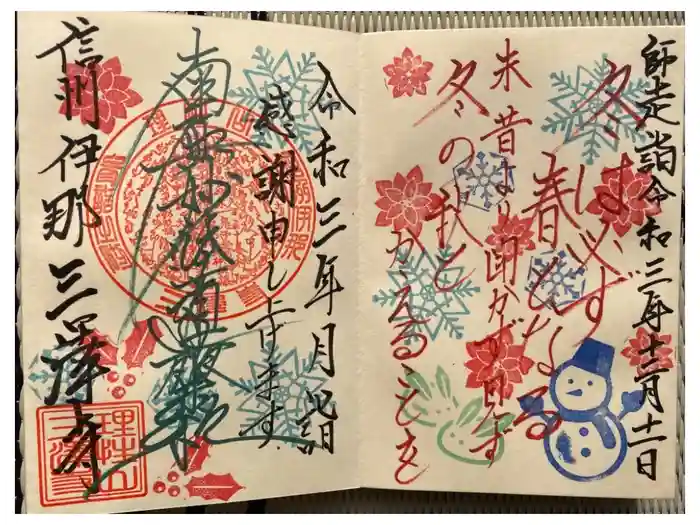 師走詣令和三年十二月十一日
冬は必ず
春となる
未昔より聞かず見ず
冬の秋と
かへることを
令和三年月詣
感謝申し上げます
南無妙法蓮華経
信州伊那三澤寺